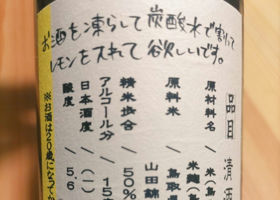 お酒を凍らして炭酸水で割って
レモンを入れて欲しいです。
品目 清酒
原材料名/米(鳥
米麹(鳥
原料米/鳥取県
山田錦
精米歩合/50%
アルコール分/15度
日本酒度/(一)
酸度/5.6
※お酒は20歳になってか